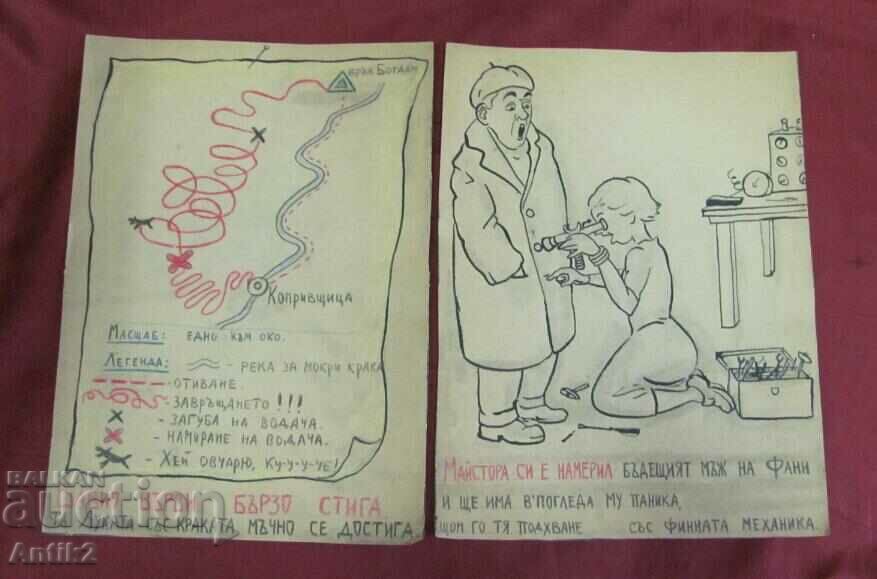 връх Богдан
Копривщица
Масщаб: едно към око.
Легенда: - река за мокри крака
- отиване.
- завръщането!!!
- загуба на водача.
- намиране на водача.
- Хей овчарю, ку-у-у-че!
върви бързо стига
та със краката мъчно се достига.
Майстора си е намерил бъдещият мъж на Фани
и ще има в'погледа му паника,
щом го тя подхване със финната механика.
BALKAN
auction
Antik2